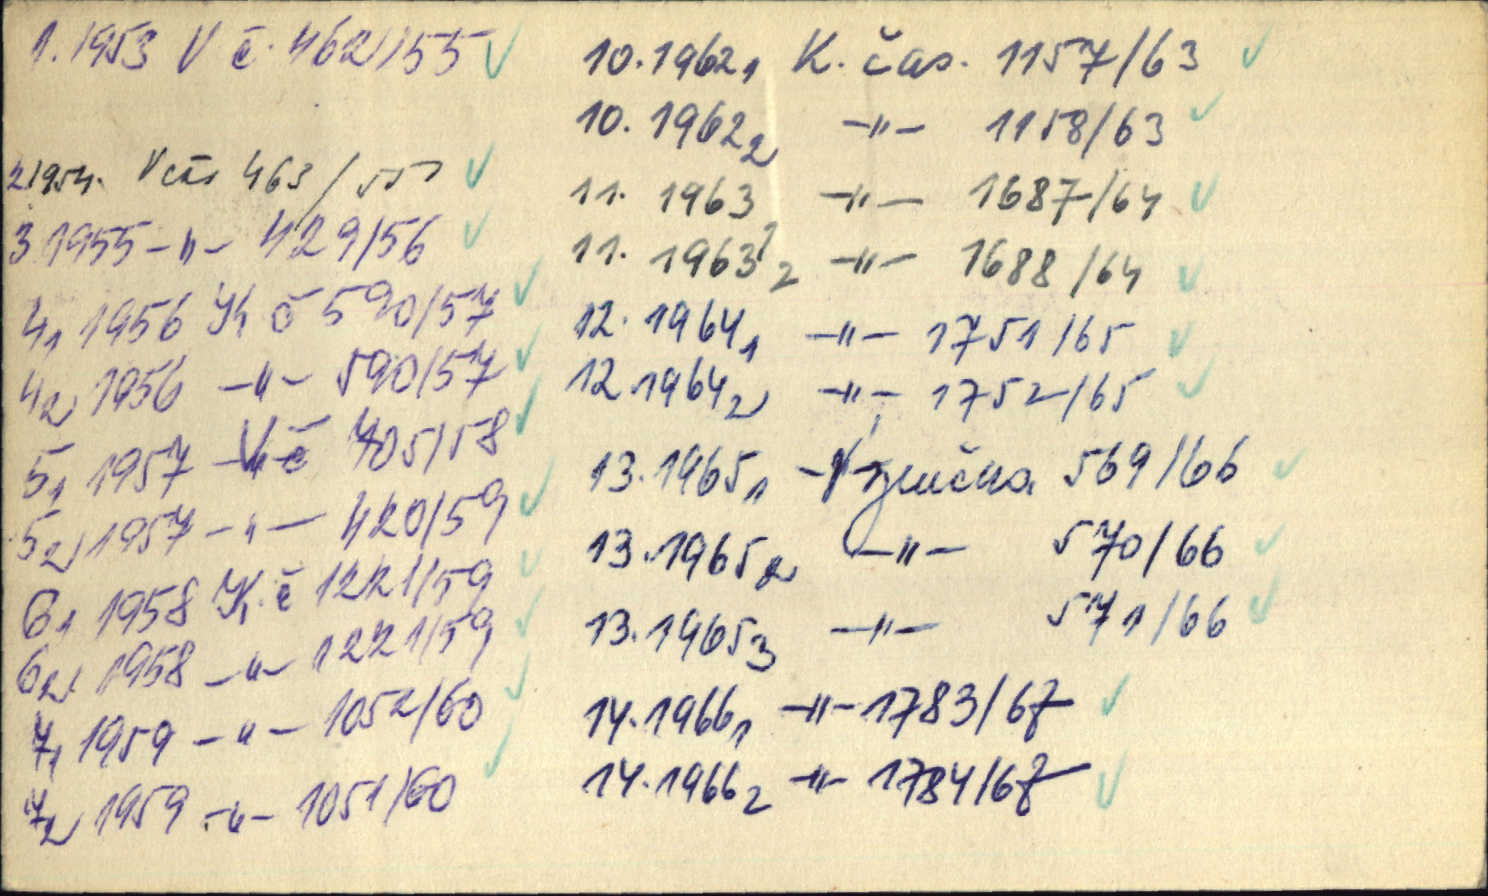 1. 1953 V č. 462/55 ✓
2 1954. V čas 463/55 ✓
3 1955 -"- 429/56 ✓
4₁ 1956 K č 590/57 ✓
4₂ 1956 -"- 590/57 ✓
5₁ 1957 V č 405/58 ✓
5₂ 1957 -"- 420/59 ✓
6₁ 1958 K. č 1221/59 ✓
6₂ 1958 -"- 1221/59 ✓
7₁ 1959 -"- 1052/60 ✓
7₂ 1959 -"- 1051/60 ✓
10. 1962₁ K. čas. 1157/63 ✓
10. 1962₂ -"- 1158/63 ✓
11. 1963₁ -"- 1687/64 ✓
11. 1963₂ -"- 1688/64 ✓
12. 1964₁ -"- 1751/65 ✓
12. 1964₂ -"- 1752/65 ✓
13. 1965₁ 569/66 ✓
13. 1965₂ -"- 570/66 ✓
13. 1965₃ -"- 571/66 ✓
14. 1966₁ -"- 1783/67 ✓
14. 1966₂ -"- 1784/67 ✓